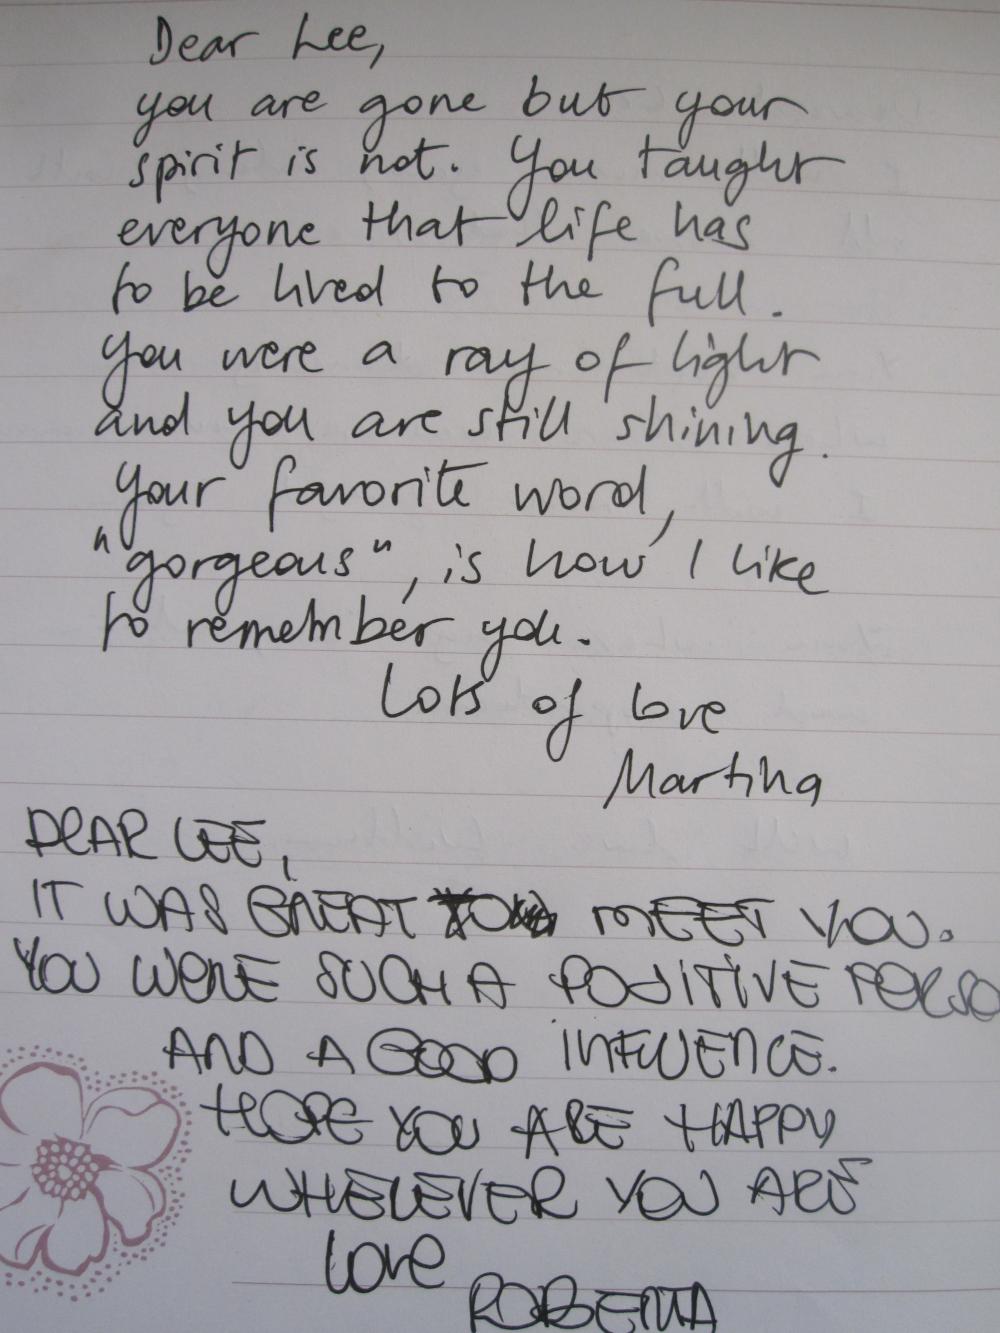 Dear Lee,
you are gone but your
spirit is not. You taught
everyone that life has
to be lived to the full.
You were a ray of light
and you are still shining.
Your favorite word,
"gorgeous", is how I like
to remember you.
Lots of love
Martina
DEAR LEE,
IT WAS GREAT TO MEET YOU.
YOU WERE SUCH A POSITIVE PERSO
AND A GOOD INFLUENCE.
HOPE YOU ARE HAPPY
WHEREVER YOU ARE
Love
ROBERTA